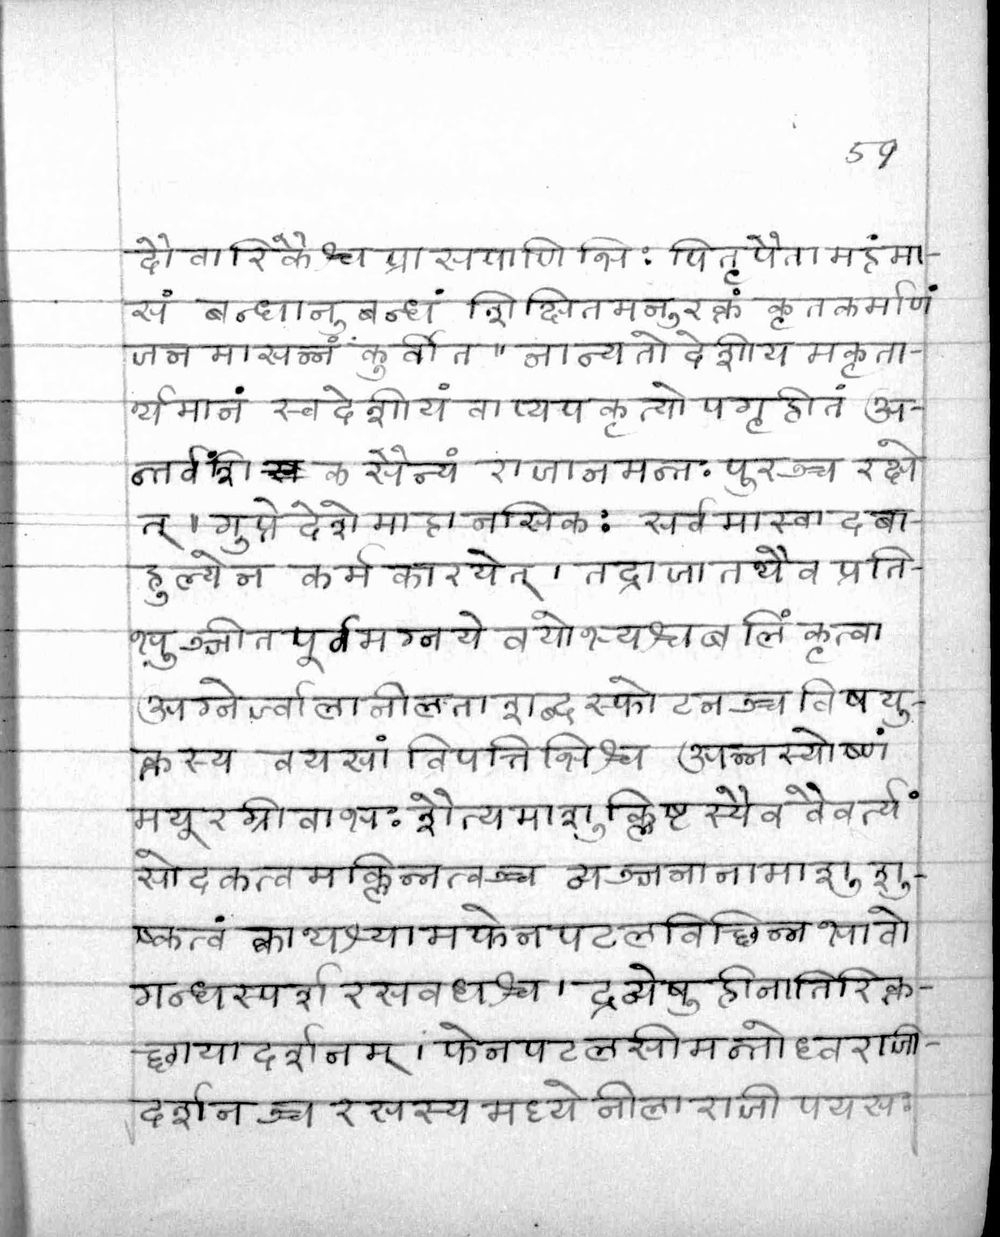 59
दौवारिकैश्च प्रासपाणिभिः पितृपैतामहंमा-
सं बन्धानुबन्धं शिक्षितमनुरक्तं कृतकर्माणं
जन मासन्नं कुर्वीत॥ नान्यतो देशीय मकृता-
र्थ्यमानं स्वदेशीयं वाप्यपकृत्योपगृहीतं अ-
न्तर्वंशि क सैन्यं राजानमन्तःपुरञ्च रक्षे
त्। गुप्ते देशे माहानसिकः सर्वमास्वादबा-
हुल्येन कर्म कारयेत्। तद्राजा तथैव प्रति-
भुञ्जीत पूर्वमग्नये वयोभ्यश्च बलिं कृत्वा
अग्नेर्ज्वालानीलता शब्दस्फोटनञ्च विषयु-
क्तस्य वयसां विपत्तिभिश्च अन्नस्योष्णं
मयूरग्रीवाभः शैत्यमाशुक्लिष्टस्यैव वैवर्त्यं
सोदकत्वमक्लिन्नत्वञ्च व्यञ्जनानामाशु शु-
ष्कत्वं क्वाथश्यामफेनपटलविछिन्नभावो
गन्धस्पर्शरसवधश्च। द्रव्येषु हीनातिरिक्त-
छायादर्शनम्। फेनपटलसीमन्तोध्वराजी-
दर्शनञ्च रसस्य मध्ये नीला राजी पयसः